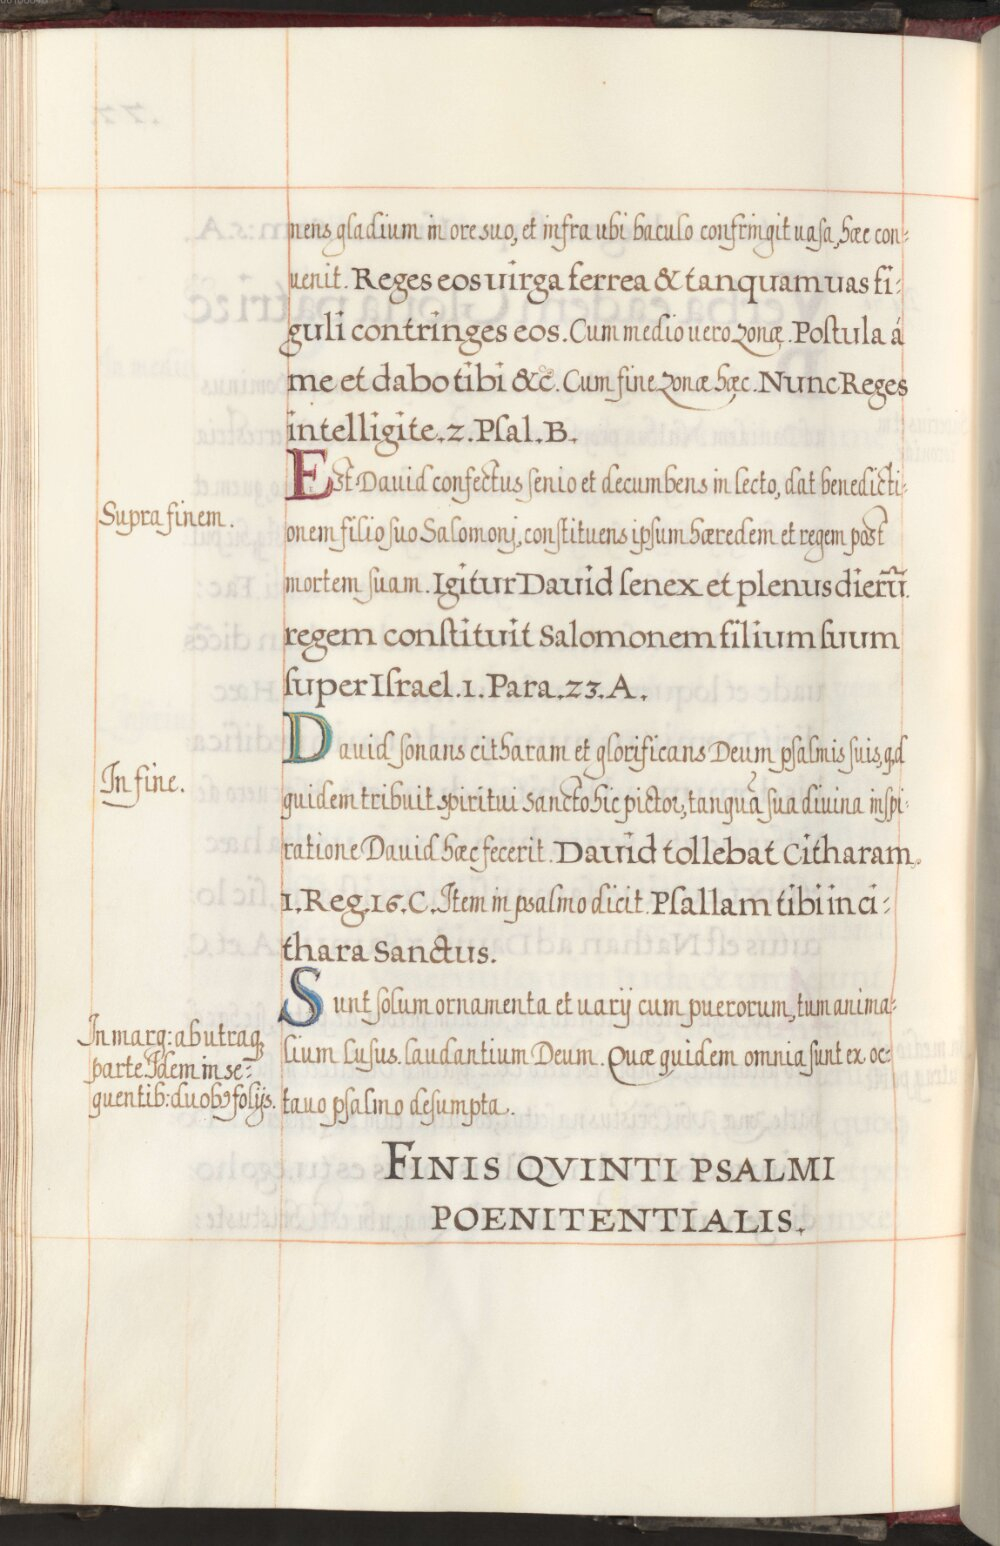 nens gladium in ore suo, et infra ubi baculo confringit uasa, hæc con:
uenit. Reges eos uirga ferrea & tanquam uas fi:
guli contringes eos. Cum medio uero zonæ. Postula á
me et dabo tibi &c̃. Cum fine zonæ hæc. Nunc Reges
intelligite. 2. Psal. B.
Supra finem.
Est Dauid confectus senio et decumbens in lecto, dat benedicti:
onem filio suo Salomoni, constituens ipsum hæredem et regem post
mortem suam. Igitur Dauid senex et plenus dierũ
regem constituit Salomonem filium suum
super Israel. 1. Para. 23. A.
In fine.
Dauid sonans citharam et glorificans Deum psalmis suis, qd
quidem tribuit spiritui sancto hic pictor, tanquã sua diuina inspi:
ratione Dauid hæc fecerit. Dauid tollebat Citharam.
1. Reg. 16. C. Item in psalmo dicit. Psallam tibi in ci:
thara Sanctus.
In marg: ab utraq
parte. Idem in se:
quentib: duobꝰ folijs.
Sunt solum ornamenta et uarij cum puerorum, tum anima:
lium lusus. laudantium Deum. Quæ quidem omnia sunt ex oc:
tauo psalmo desumpta.
FINIS QVINTI PSALMI
POENITENTIALIS.